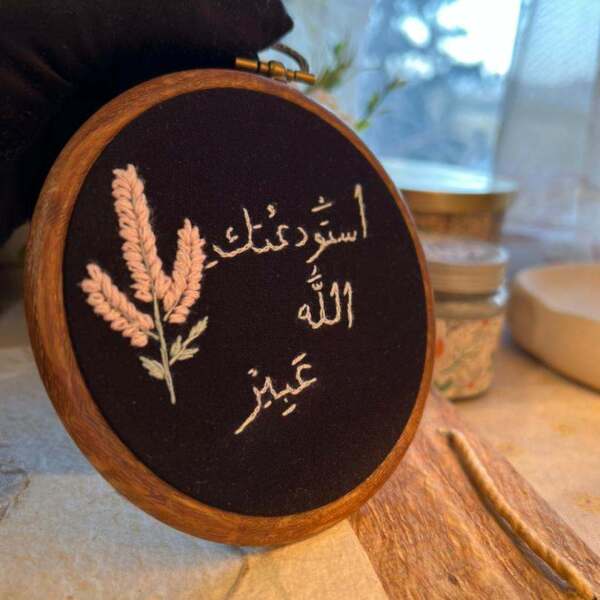 استَودعتُكِ
اللَّه
عَبِير